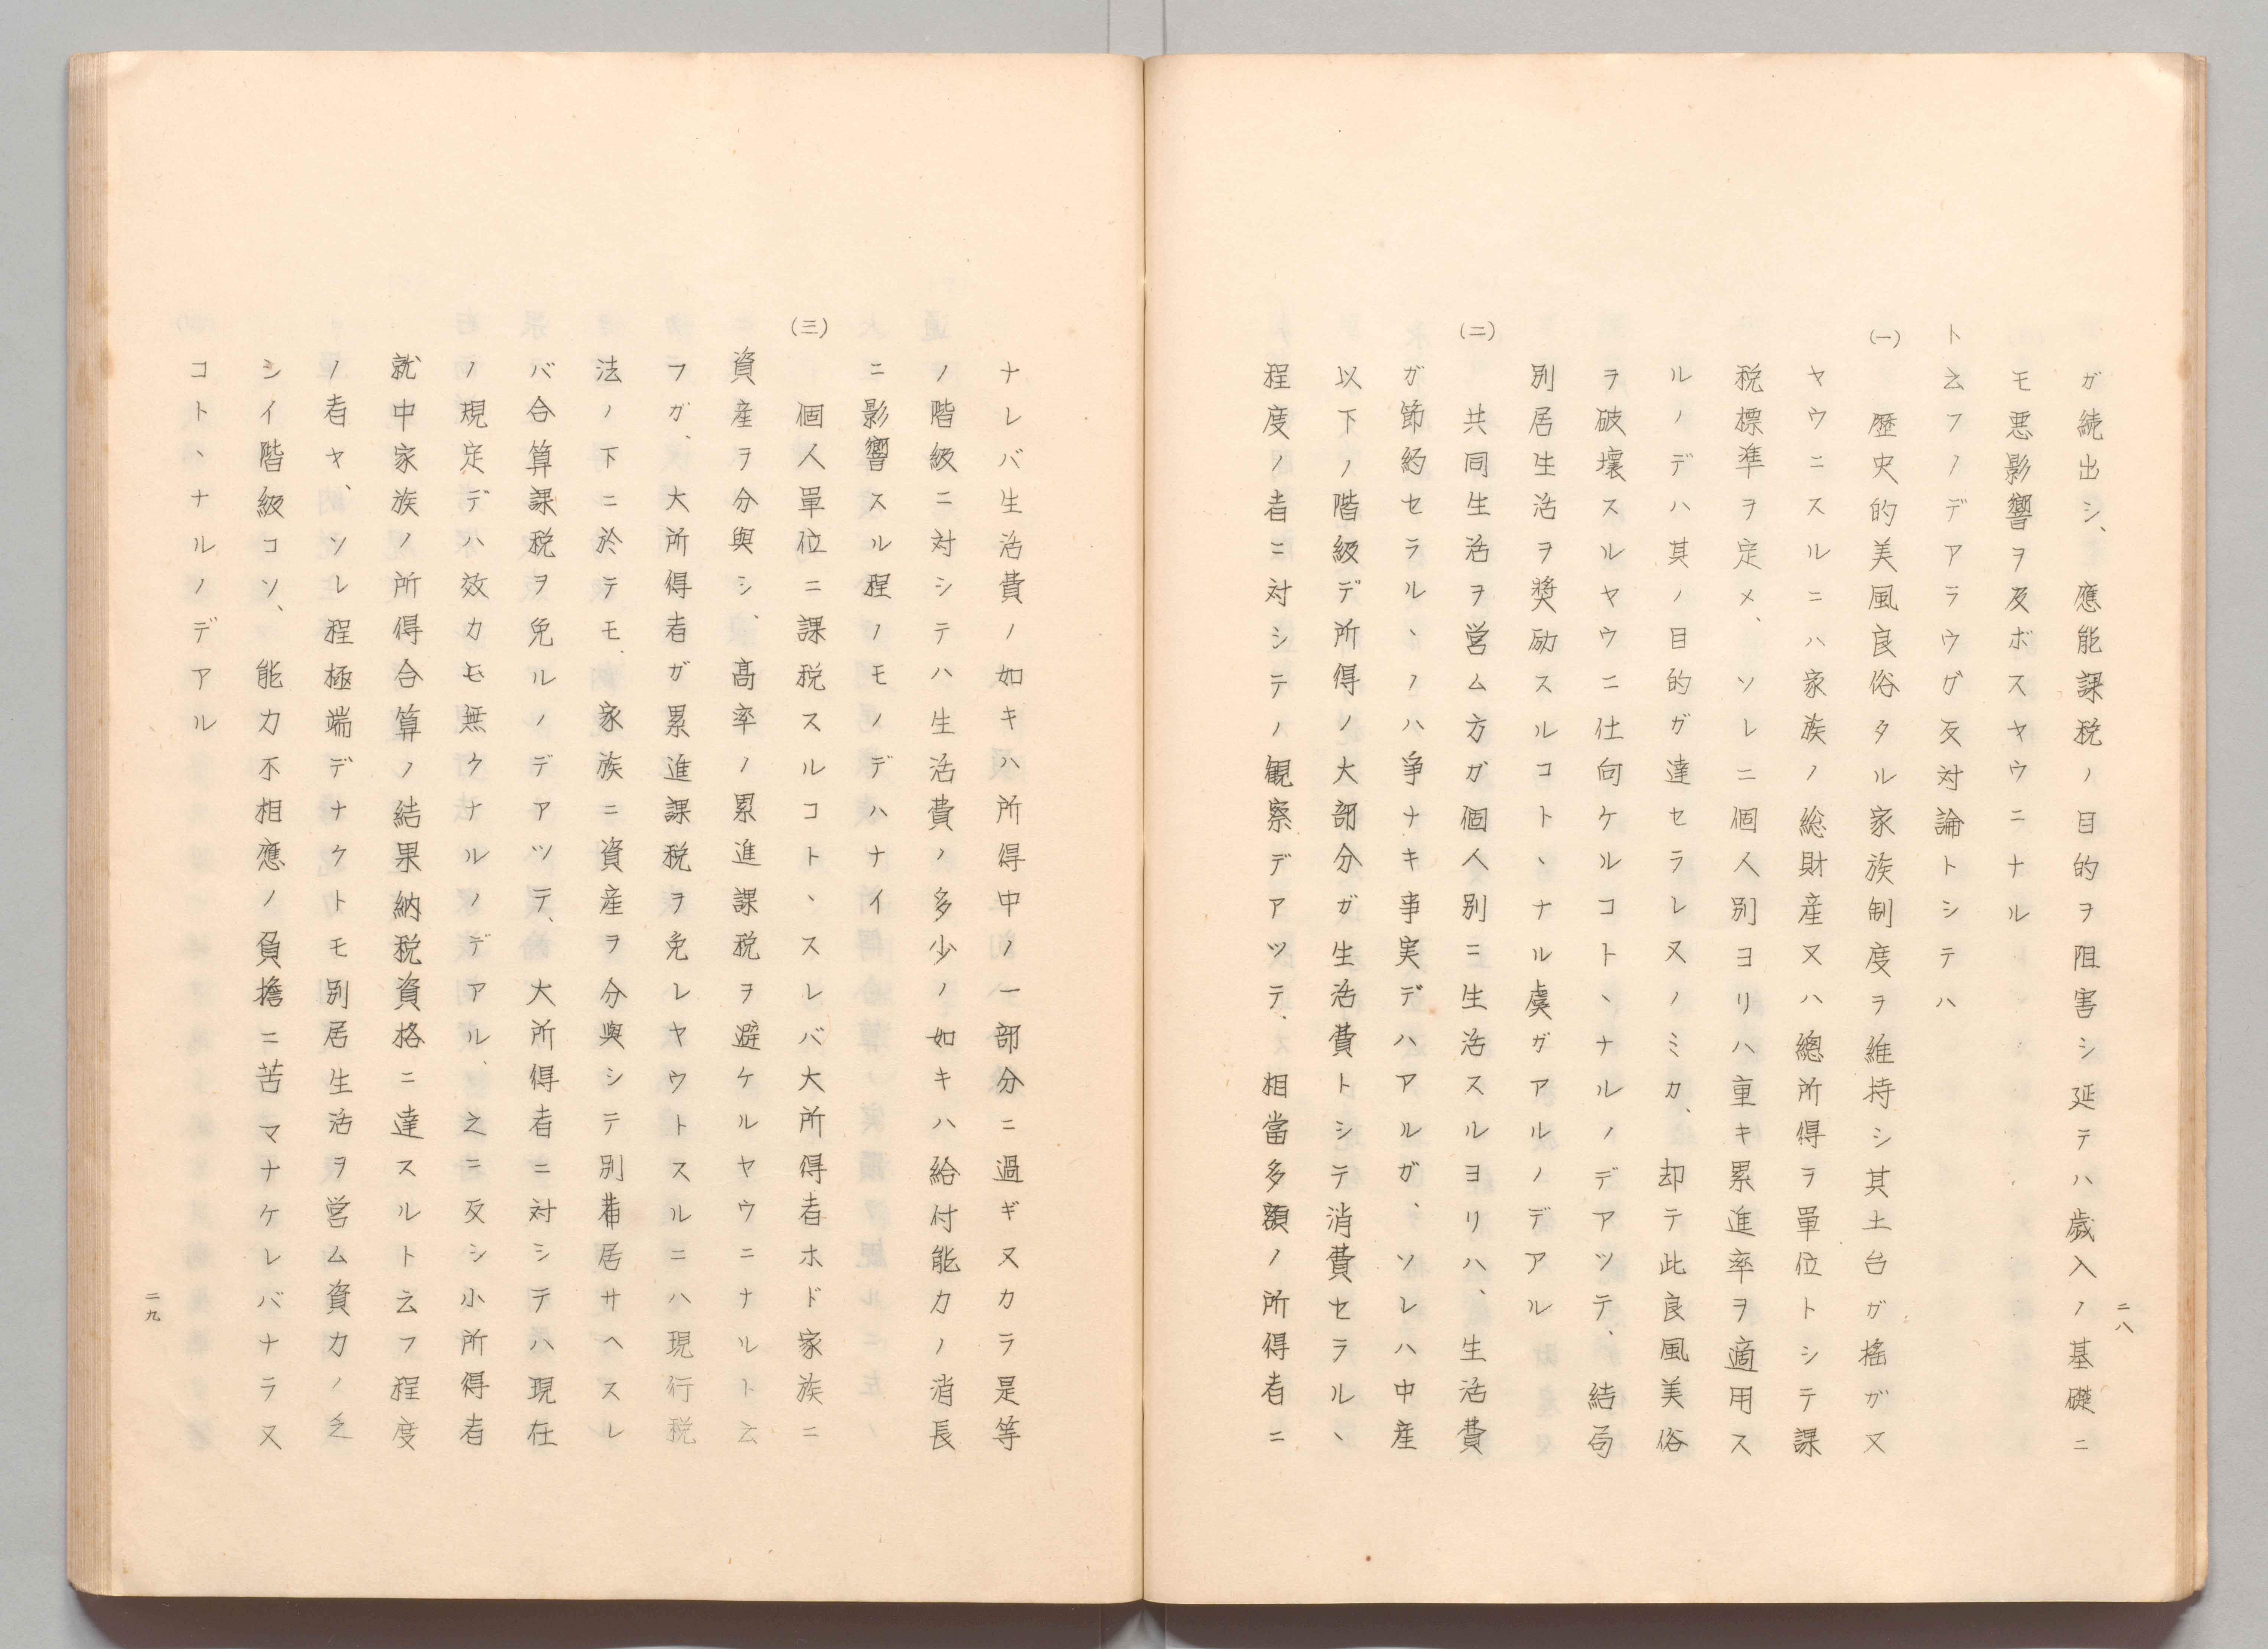 二八
ガ続出シ、應能課税ノ目的ヲ阻害シ延テハ歳入ノ基礎ニ
モ悪影響ヲ及ボスヤウニナル
ト云フノデアラウガ反対論トシテハ
(一) 歴史的美風良俗タル家族制度ヲ維持シ其土台ガ搖ガヌ
ヤウニスルニハ家族ノ総財産又ハ總所得ヲ單位トシテ課
税標準ヲ定メ、ソレニ個人別ヨリハ重キ累進率ヲ適用ス
ルノデハ其ノ目的ガ達セラレヌノミカ、却テ此良風美俗
ヲ破壞スルヤウニ仕向ケルコトヽナルノデアツテ、結局
別居生活ヲ奨励スルコトヽナル虞ガアルノデアル
(二) 共同生活ヲ営ム方ガ個人別ニ生活スルヨリハ、生活費
ガ節約セラルヽノハ爭ナキ事実デハアルガ、ソレハ中産
以下ノ階級デ所得ノ大部分ガ生活費トシテ消費セラルヽ
程度ノ者ニ対シテノ観察デアツテ、相當多額ノ所得者ニ
ナレバ生活費ノ如キハ所得中ノ一部分ニ過ギヌカラ是等
ノ階級ニ対シテハ生活費ノ多少ノ如キハ給付能力ノ消長
ニ影響スル程ノモノデハナイ
(三) 個人單位ニ課税スルコトヽスレバ大所得者ホド家族ニ
資産ヲ分與シ、高率ノ累進課税ヲ避ケルヤウニナルト云
フガ、大所得者ガ累進課税ヲ免レヤウトスルニハ現行税
法ノ下ニ於テモ、家族ニ資産ヲ分與シテ別居サヘスレ
バ合算課税ヲ免ルノデアツテ、大所得者ニ対シテハ現在
ノ規定デハ效力モ無クナルノデアル、之ニ反シ小所得者
就中家族ノ所得合算ノ結果納税資格ニ達スルト云フ程度
ノ者ヤ、ソレ程極端デナクトモ別居生活ヲ営ム資力ノ乏
シイ階級コソ、能力不相應ノ負擔ニ苦マナケレバナラヌ
コトヽナルノデアル
二九